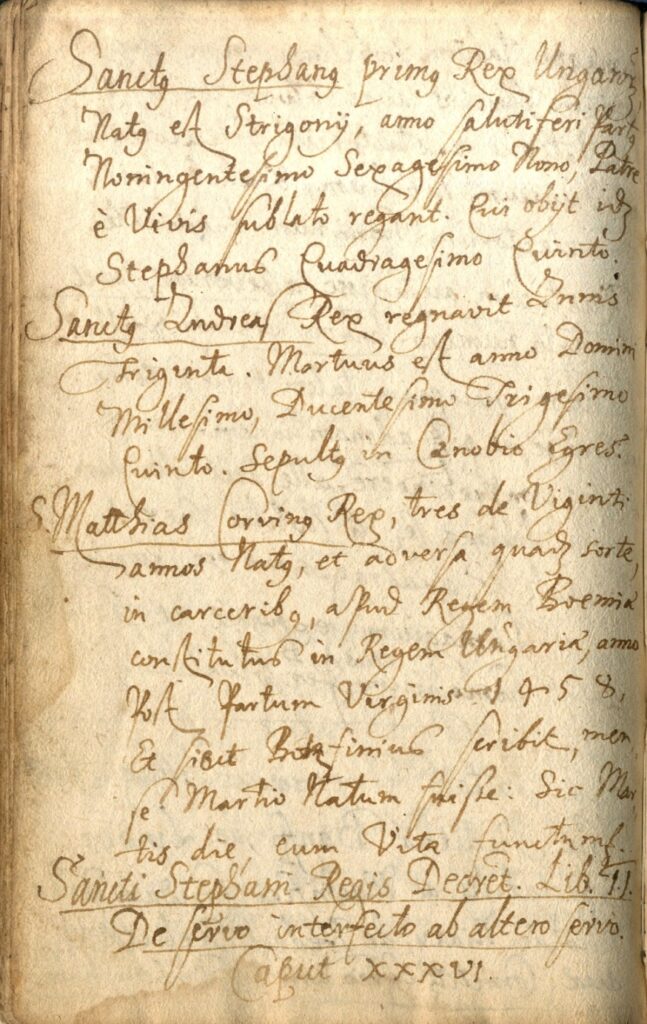 Sanctꝰ Stephanꝰ primꝰ Rex Ungaroꝝ
Natꝰ est Strigonij, anno salutiferi Partꝰ
Noningentesimo Sexagesimo Nono, Patre
è Vivis sublato regant. Cui obijt idꝫ
Stephanus Quadragesimo Quinto.
Sanctꝰ Andreas Rex regnavit Annis
Triginta. Mortuus est anno Domini
Millesimo, Ducentesimo Trigesimo
Quinto. Sepultꝰ in Cænobio Egres.
S. Matthias Corvinꝰ Rex, tres de Viginti
annos Natꝰ, et adversa quadꝫ sorte,
in carceribꝰ, apud Regem Boemiæ
constitutus in Regem Ungariæ, anno
Post Partum Virginis 1458,
Et sicut Bonfinius scribit, men
se Martio Natum fuisse: Sic Mar
tis die, eum Vita functum.
Sancti Stephani Regis Decret. Lib. II.
De servo interfecto ab altero servo.
Caput XXXVI.